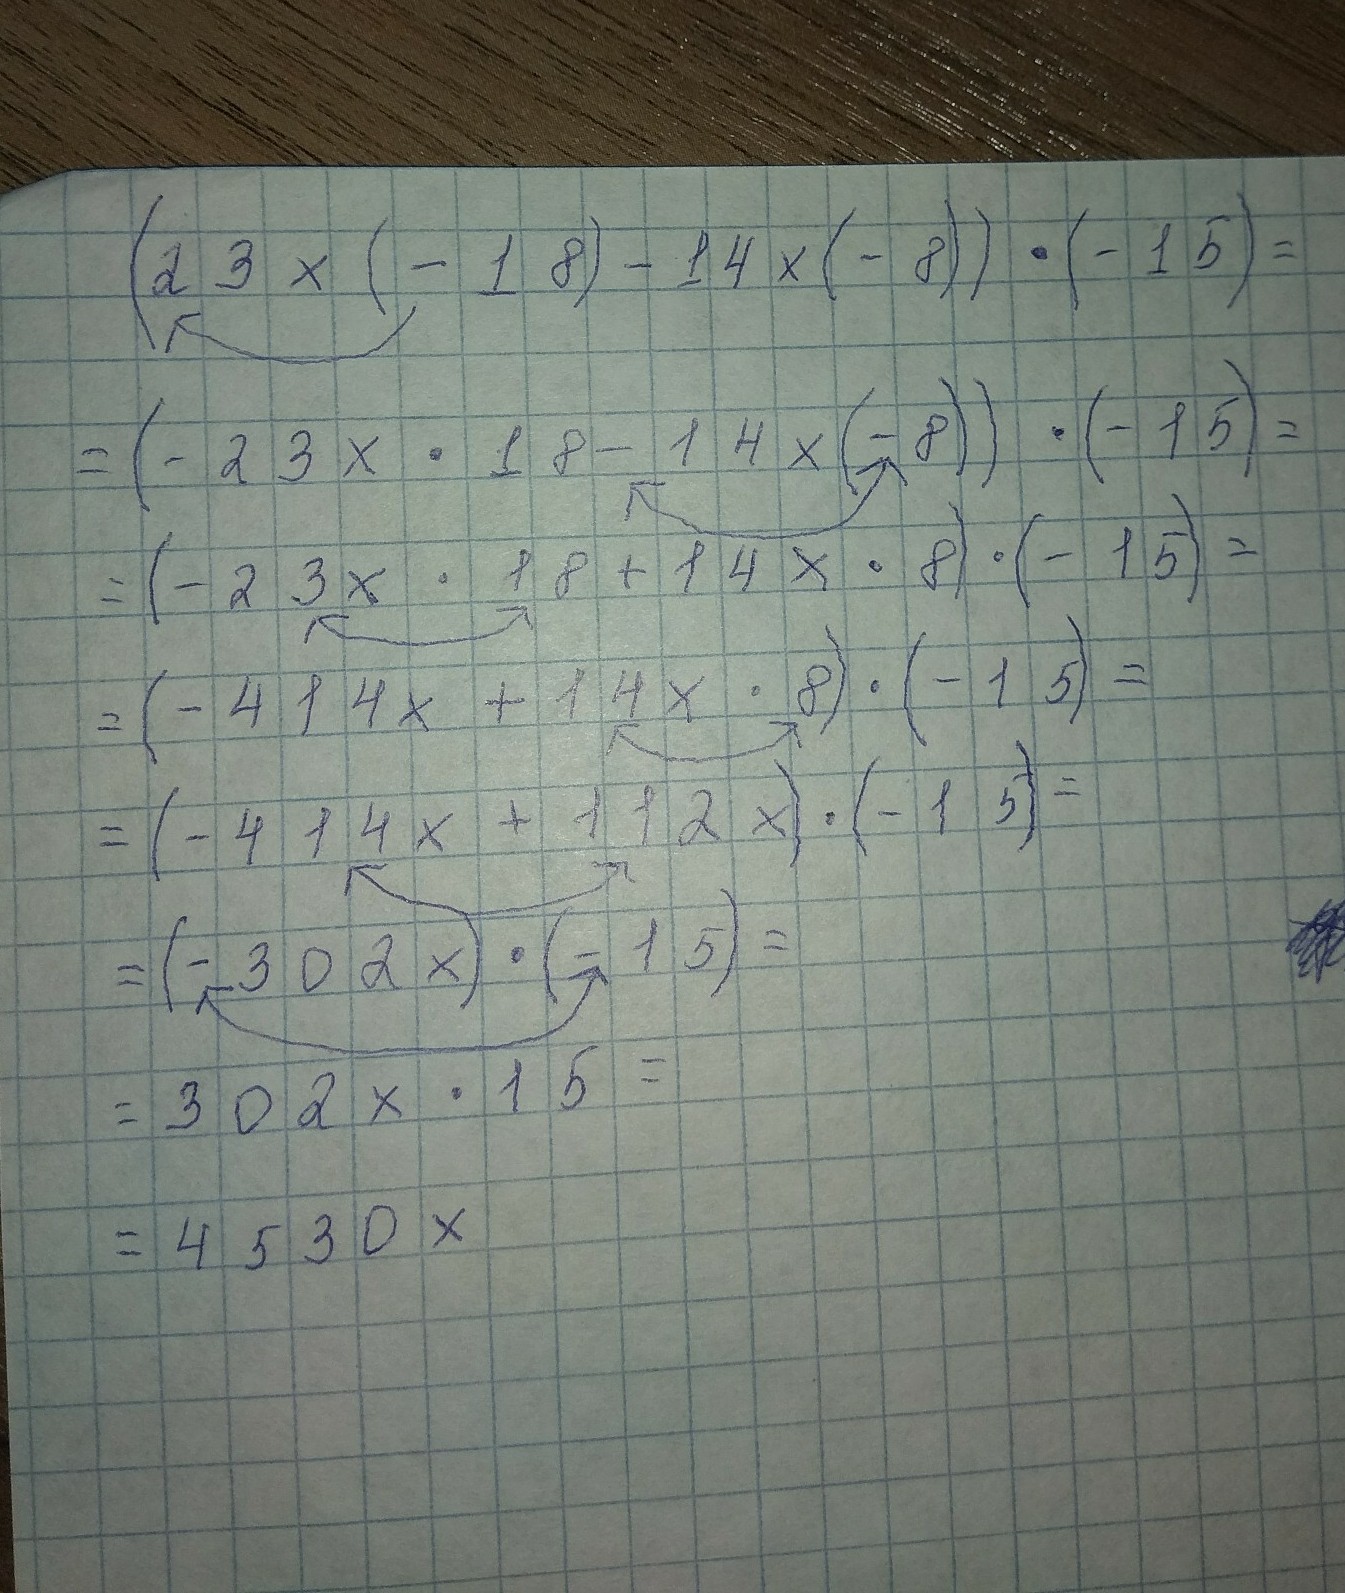 (23x(-18)-14x(-8))·(-15)=
=(-23x·18-14x(-8))·(-15)=
=(-23x·18+14x·8)·(-15)=
=(-414x+14x·8)·(-15)=
=(-414x+112x)·(-15)=
=(-302x)·(-15)=
=302x·15=
=4530x